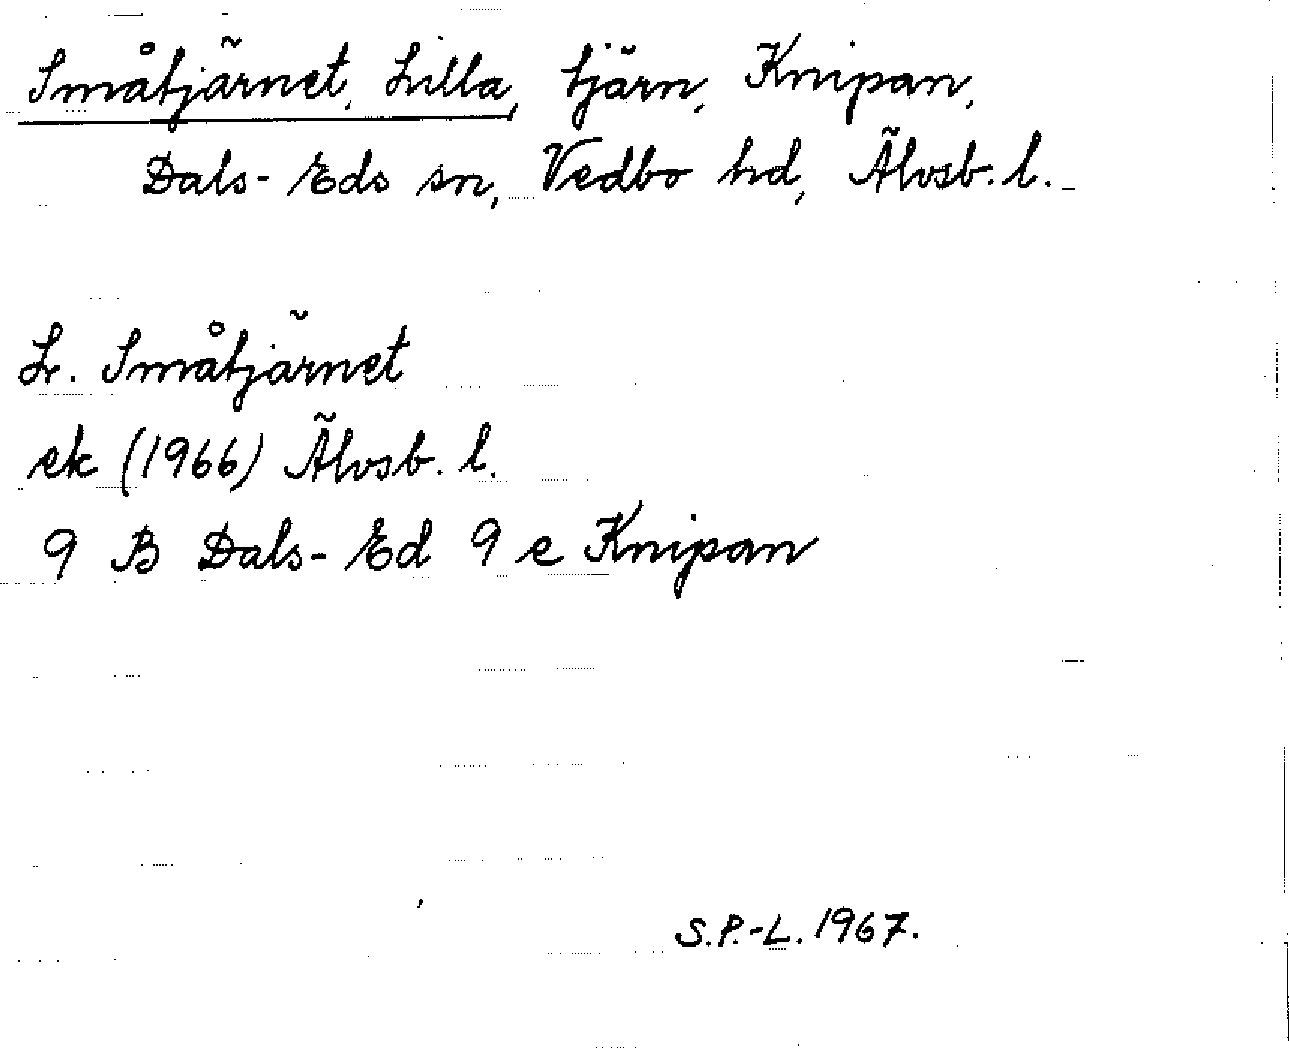 Småtjärnet, Lilla, tjärn, Knipan,
Dals-Eds sn, Vedbo hd, Älvsb. l.
L. Småtjärnet
ek (1966) Älvsb. l.
9 B Dals-Ed 9 e Knipan
S.P.-L. 1967.